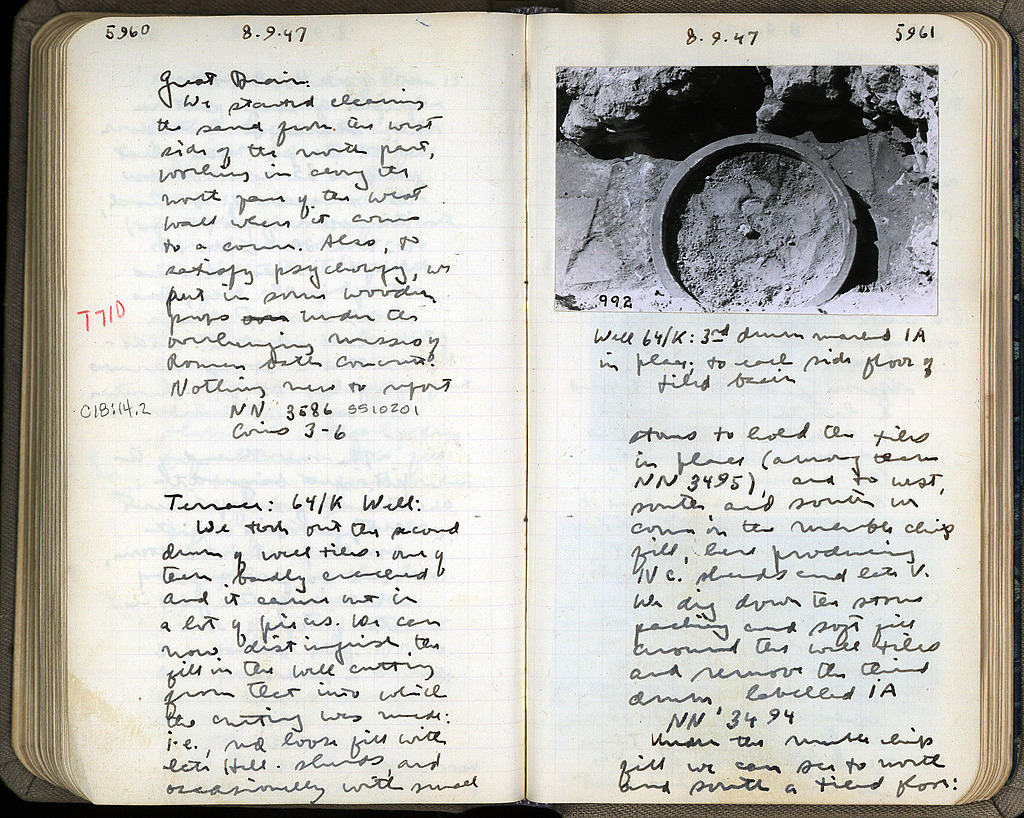 5960
8.9.47
Great Drain:
We started cleaning
the sand from the west
side of the north part,
working in along the
north face of the west
wall where it comes
to a corner. Also, to
satisfy psychology, we
put in some wooden
props under the
overhanging masses of
Roman bath concrete.
Nothing new to report
T710
C18:14.2
NN 3586 SS10201
Coins 3-6
Terrace: 64/K Well:
We took out the second
drum of well tiles: one of
them badly cracked
and it came out in
a lot of pieces. We can
now distinguish the
fill in the well cutting
from that into which
the cutting was made:
i.e., red loose fill with
late Hell. sherds, and
occasionally with small
8.9.47
5961
992
Well 64/K: 3rd drum marked IA
in place; to each side floor of
tiled basin
stones to hold the tiles
in place (among them
NN 3495), and to west,
south, and south we
come on the marble chip
fill, here producing
IV c. sherds and late V.
We dig down the stone
packing and soft fill
around the well tiles
and remove the third
drum labelled IA
NN 3494
Under the marble chip
fill we can see to north
and south a tiled floor: